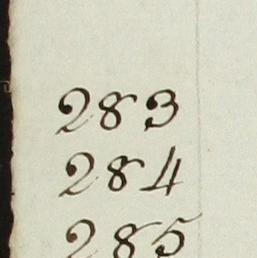 283
284
285